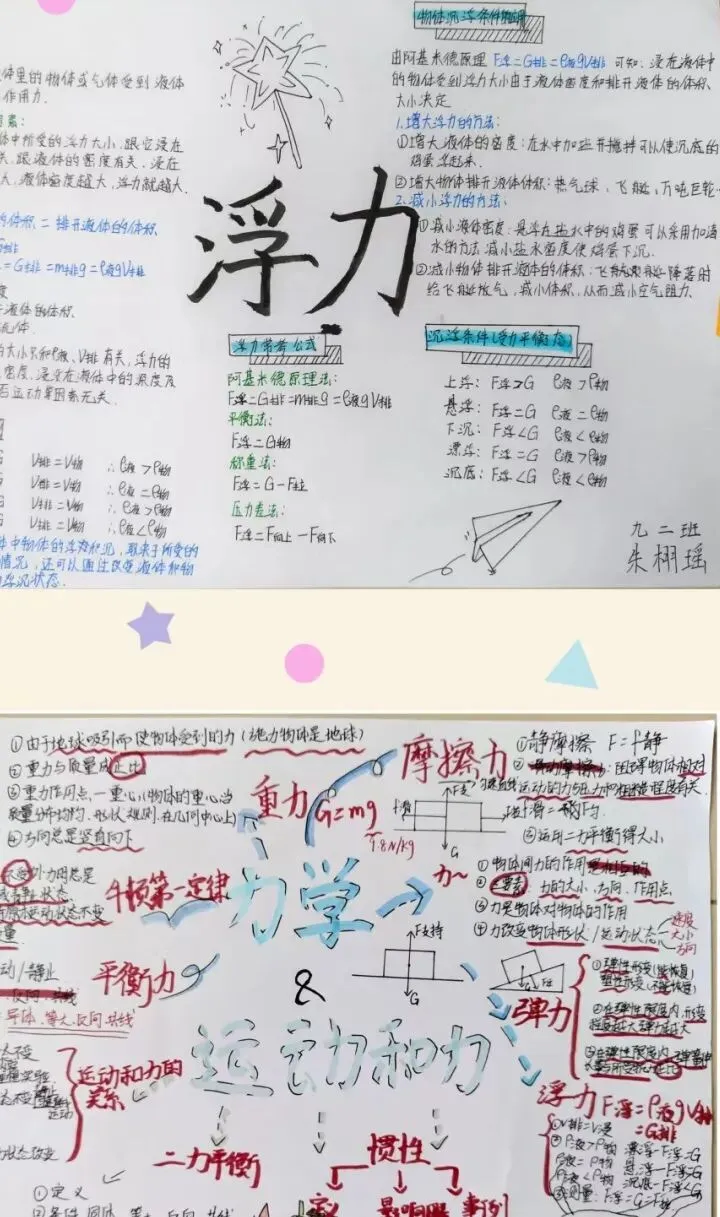 物体沉浮条件的应用
由阿基米德原理 F浮=G排=ρ液gV排 可知:浸在液体中
的物体受到浮力大小由于液体密度和排开液体的体积、
大小决定
1.增大浮力的方法:
①增大液体的密度:在水中加盐并搅拌可以使沉底的
鸡蛋浮起来.
②增大物体排开液体体积:热气球,飞艇,万吨巨轮
2.减小浮力的方法:
①减小液体密度:悬浮在盐水中的鸡蛋可以采用加清
水的方法减小盐水密度使鸡蛋下沉.
②减小物体排开液体的体积:飞艇降落时
给飞艇放气,减小体积,从而减小空气阻力.
体里的物体或气体受到液体
作用力.
素:
体中所受的浮力大小,跟它浸在
关,跟液体的密度有关,浸在
大,液体密度越大,浮力就越大.
的体积=排开液体的体积
=G排=m排g=ρ液gV排
度
液体的体积
大小只和ρ液、V排有关,浮力的
密度、浸没在液体中的深度及
否运动等因素无关.
V排=V物 ∴ρ液>ρ物
V排=V物 ∴ρ液=ρ物
V排=V物 ∴ρ液>ρ物
V排=V物 ∴ρ液<ρ物
体中物体的浮与沉,取决于所受的
情况,还可以通过比较液体和物
浮沉状态.
浮力
浮力常考公式
阿基米德原理法:
F浮=G排=m排g=ρ液gV排
平衡法:
F浮=G物
称重法:
F浮=G-F拉
压力差法:
F浮=F向上-F向下
沉浮条件(受力平衡态)
上浮:F浮>G ρ液>ρ物
悬浮:F浮=G ρ液=ρ物
下沉:F浮<G ρ液<ρ物
漂浮:F浮=G ρ液>ρ物
沉底:F浮<G ρ液<ρ物
九二班
朱栩瑶
①由于地球吸引而使物体受到的力(施力物体是地球)
②重力与质量成正比
③重力作用点—重心(物体的重心当
质量分布均匀、形状规则、在几何中心上)
④方向总是竖直向下
重力 G=mg
9.8N/kg
摩擦力
①静摩擦 F=f静
阻碍物体相对
运动的力
③运用二力平衡得大小
F支
G
力~
①物体间力的作用是相互的
②三要素:力的大小、方向、作用点
③力是物体对物体的作用
④力改变物体形状/运动状态
速度
大小
方向
牛顿第一定律
力学
&
运动和力
平衡力
F支持
G
弹力
①弹性形变(能恢复)
塑性形变(不能恢复)
②在弹性限度内,形变
程度越大弹力越大
③在弹性限度内
浮力 F浮=ρ液gV排
=G排
①V排=V浸
②ρ液>ρ物 漂浮-F浮=G
ρ液=ρ物 悬浮-F浮=G
ρ液<ρ物 沉底-F浮<G
运动和力的
关系
二力平衡
①定义
惯性
定义 影响因素 事例